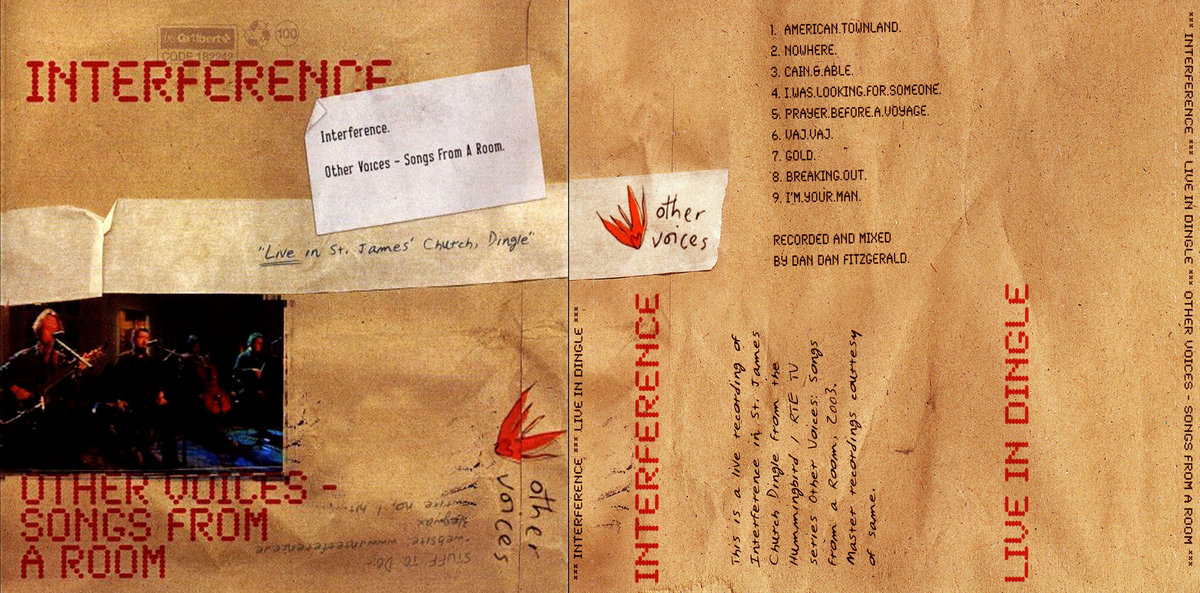 INTERFERENCE
Interference.
Other Voices - Songs From A Room.
"Live in St. James' Church, Dingle"
other
voices
OTHER VOICES -
SONGS FROM
A ROOM
STUFF TO DO:-
-website: www.interference.ie
other
voices
*** INTERFERENCE *** LIVE IN DINGLE ***
1. AMERICAN.TOWNLAND.
2. NOWHERE.
3. CAIN.&.ABLE.
4. I.WAS.LOOKING.FOR.SOMEONE.
5. PRAYER.BEFORE.A.VOYAGE.
6. VAJ.VAJ.
7. GOLD.
8. BREAKING.OUT.
9. I'M.YOUR.MAN.
RECORDED AND MIXED
BY DAN DAN FITZGERALD.
INTERFERENCE
This is a live recording of
Interference in St. James
Church Dingle from the
Hummingbird / RTE TV
series Other Voices: Songs
From a Room, 2003.
Master recordings courtesy
of same.
LIVE IN DINGLE
*** INTERFERENCE *** LIVE IN DINGLE *** OTHER VOICES - SONGS FROM A ROOM ***